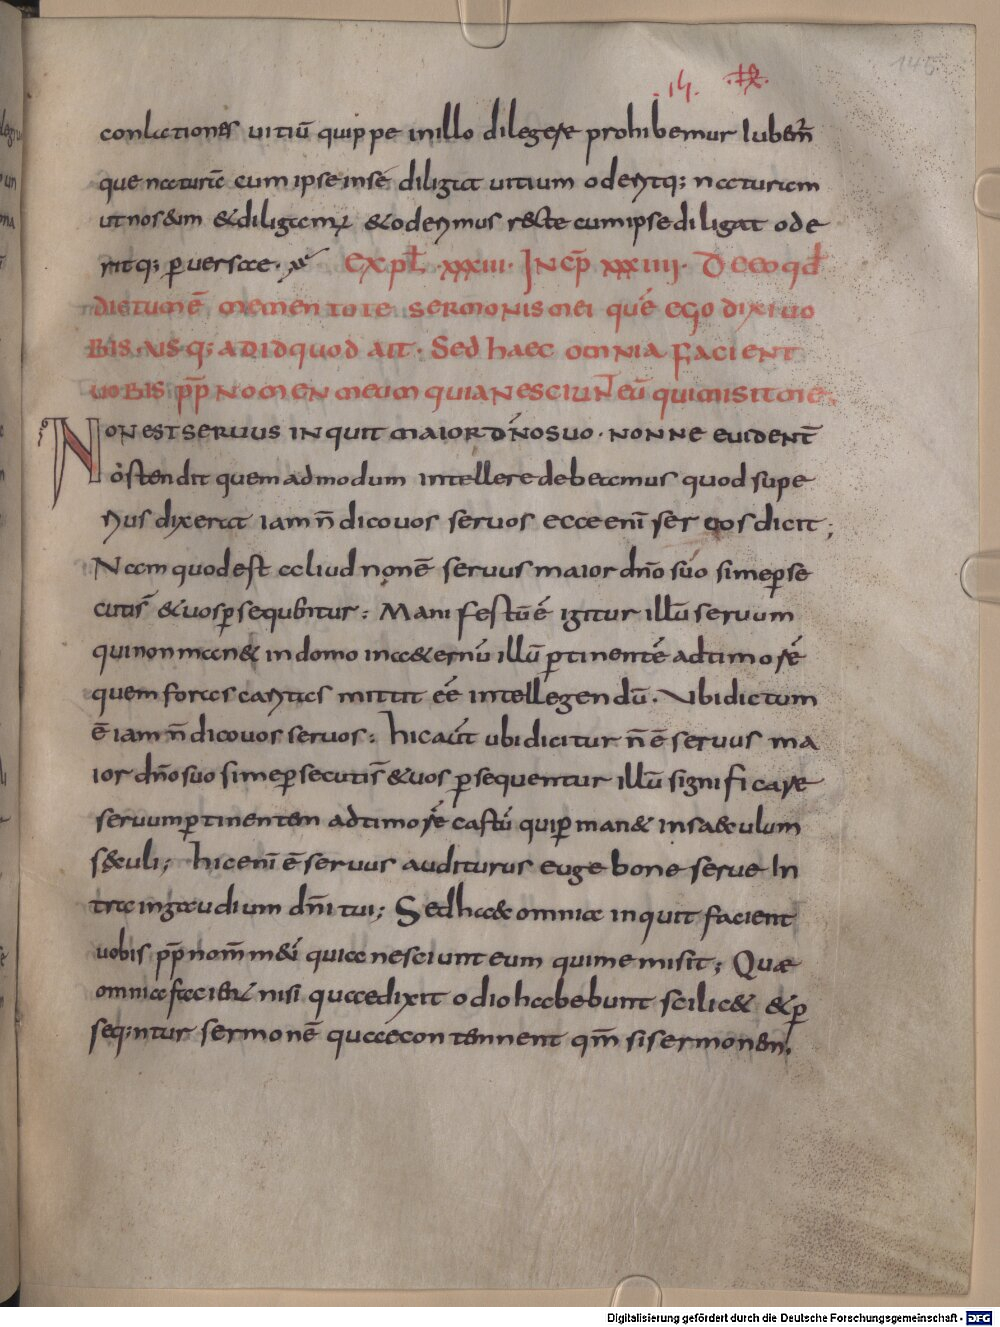 conlationes uitiū quippe inillo dilegere prohibemur Iubemr̄
que naturā cum ipse insē diligat uitium oderitq; naturam
utnos eum &diligamur &oderimus recte cumipse diligat ode
ritq; ꝑuersae. EXPL̄. XXXIII. INCP̄ XXXIIII. De eo qd̄
dictum ē mementote sermonis mei quē ego dixi uo
bis. usq; adidquod ait. Sed haec omnia facient
uobis pp̄ nomen meum quia nesciunt eū qui misit me.
Non est seruus inquit maior dn̄o suo. nonne euident̄
ostendit quemadmodum intellere debeamus quod supe
rius dixerat iam n̄ dico uos seruos ecce enī ser uos dicit;
Nam quodest aliud non ē seruus maior dn̄o suo simeꝑse
cutis̄ &uosꝑsequentur: Manifestū ē igitur illū seruum
quinon man& indomo inaeternū illū ꝑtinentē adtimorē
quem foras caritas mittit eē intellegendū. Ubi dictum
ē iam n̄ dicouos seruos: hic aūt ubi dicitur n̄ ē seruus ma
ior dn̄o suo simeꝑsecutis̄ &uos ꝑsequentur illū significare
seruumꝑtinentem adtimorē castū quiꝑman& insaeculum
saeculi; hic enī ē seruus auditurus euge bone serue In
tra ingaudium dn̄i tui; Sed haec omnia inquit facient
uobis pp̄ nom̄ meū quia nesciunt eum quime misit; Quae
omnia facient nisi quaedixit odio habebunt scilic& &ꝑ
seq;ntur sermonē quaecontennent qm̄ si sermonem.
Digitalisierung gefördert durch die Deutsche Forschungsgemeinschaft - DFG